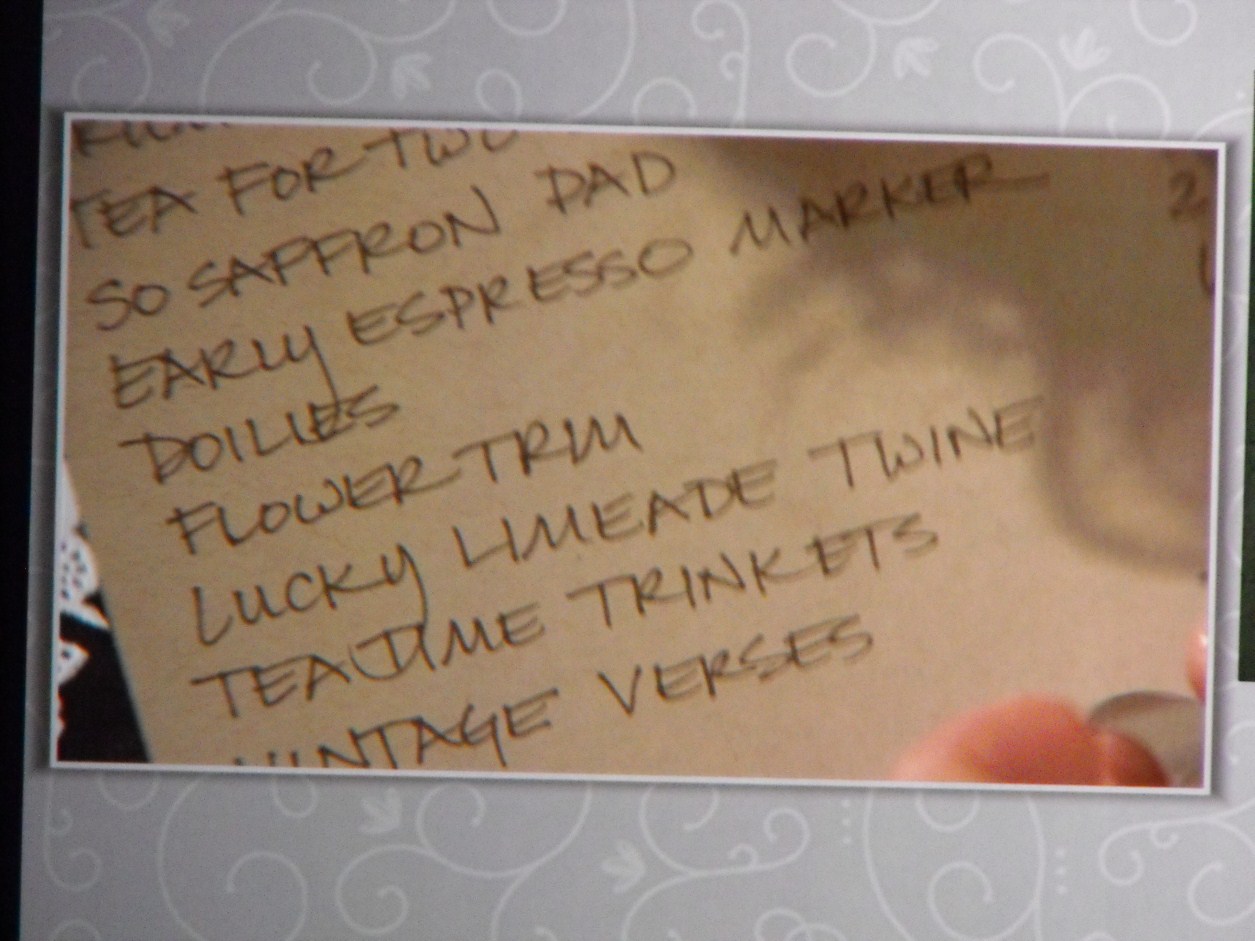 TEA FOR TWO
SO SAFFRON PAD
EARLY ESPRESSO MARKER
DOILIES
FLOWER TRIM
LUCKY LIMEADE TWINE
TEA TIME TRINKETS
VINTAGE VERSES
2